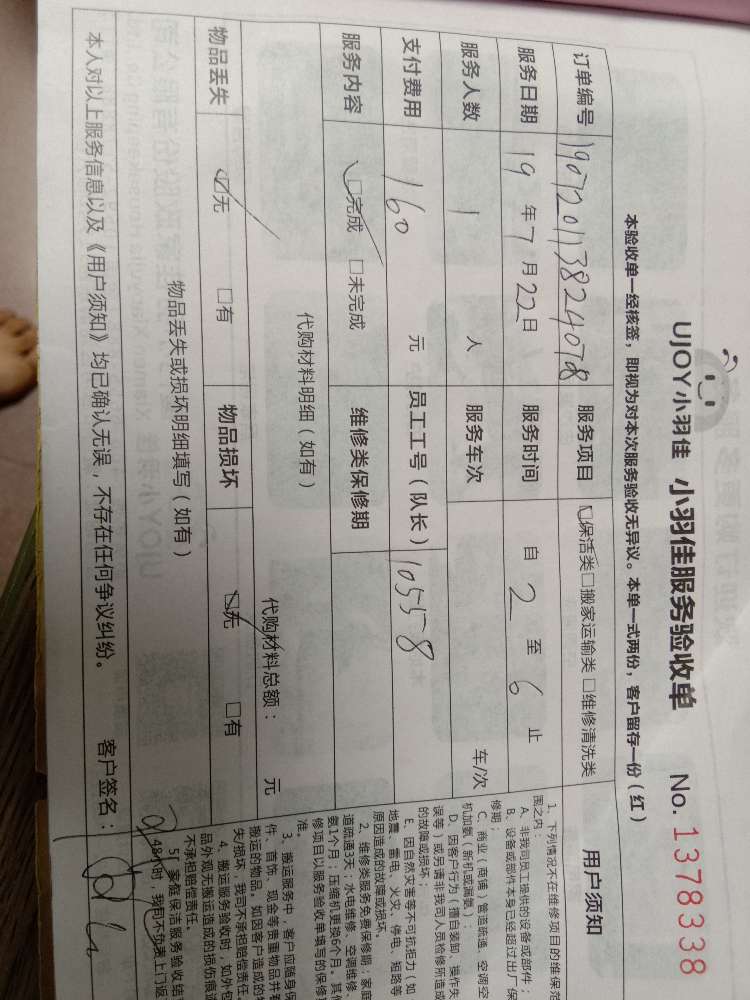 UJOY小羽佳 小羽佳服务验收单 No.1378338
本验收单一经核签，即视为对本次服务验收无异议。本单一式两份，客户留存一份（红）
订单编号 190720113824078 服务项目 ☑保洁类□搬家运输类□维修清洗类
服务日期 19年7月22日 服务时间 自2至6止
服务人数 1人 服务车次 车/次
支付费用 160元 员工工号（队长）10558
服务内容 ☑完成 □未完成 维修类保修期
代购材料明细（如有） 代购材料总额： 元
物品丢失 ☑无 □有 物品损坏 ☑无 □有
物品丢失或损坏明细填写（如有）
本人对以上服务信息以及《用户须知》均已确认无误，不存在任何争议纠纷。 客户签名：
用户须知
1、下列情况不在维修项目的维保范
围之内：
A、非我司员工提供的设备或部件；
B、设备或部件本身已经超过出厂保
修期；
C、商业（商铺）管道疏通、空调空
机加氨（新机或漏氨）；
D、因客户行为（擅自装卸、操作失
误等）或另请非我司人员检修所造成
的故障或损坏；
E、因自然灾害等不可抗拒力（如
地震、雷电、火灾、停电、短路等
原因造成的故障或损坏。
2、维修类服务免费保修期：家庭
道疏通3天；水电维修、空调维修
氨1个月；压缩机更换6个月。其他
修项目以服务验收单填写的保修期
准。
3、搬运服务中，客户应随身保
件、首饰、现金等贵重物品并有
搬运的物品，如因客户造成的物
失/损坏，我司不承担赔偿责任
4、搬运服务验收时，如外包
品外观无搬运造成的损伤痕迹
不承担赔偿责任。
5、家庭保洁服务验收结
48小时，我司不负责上门返